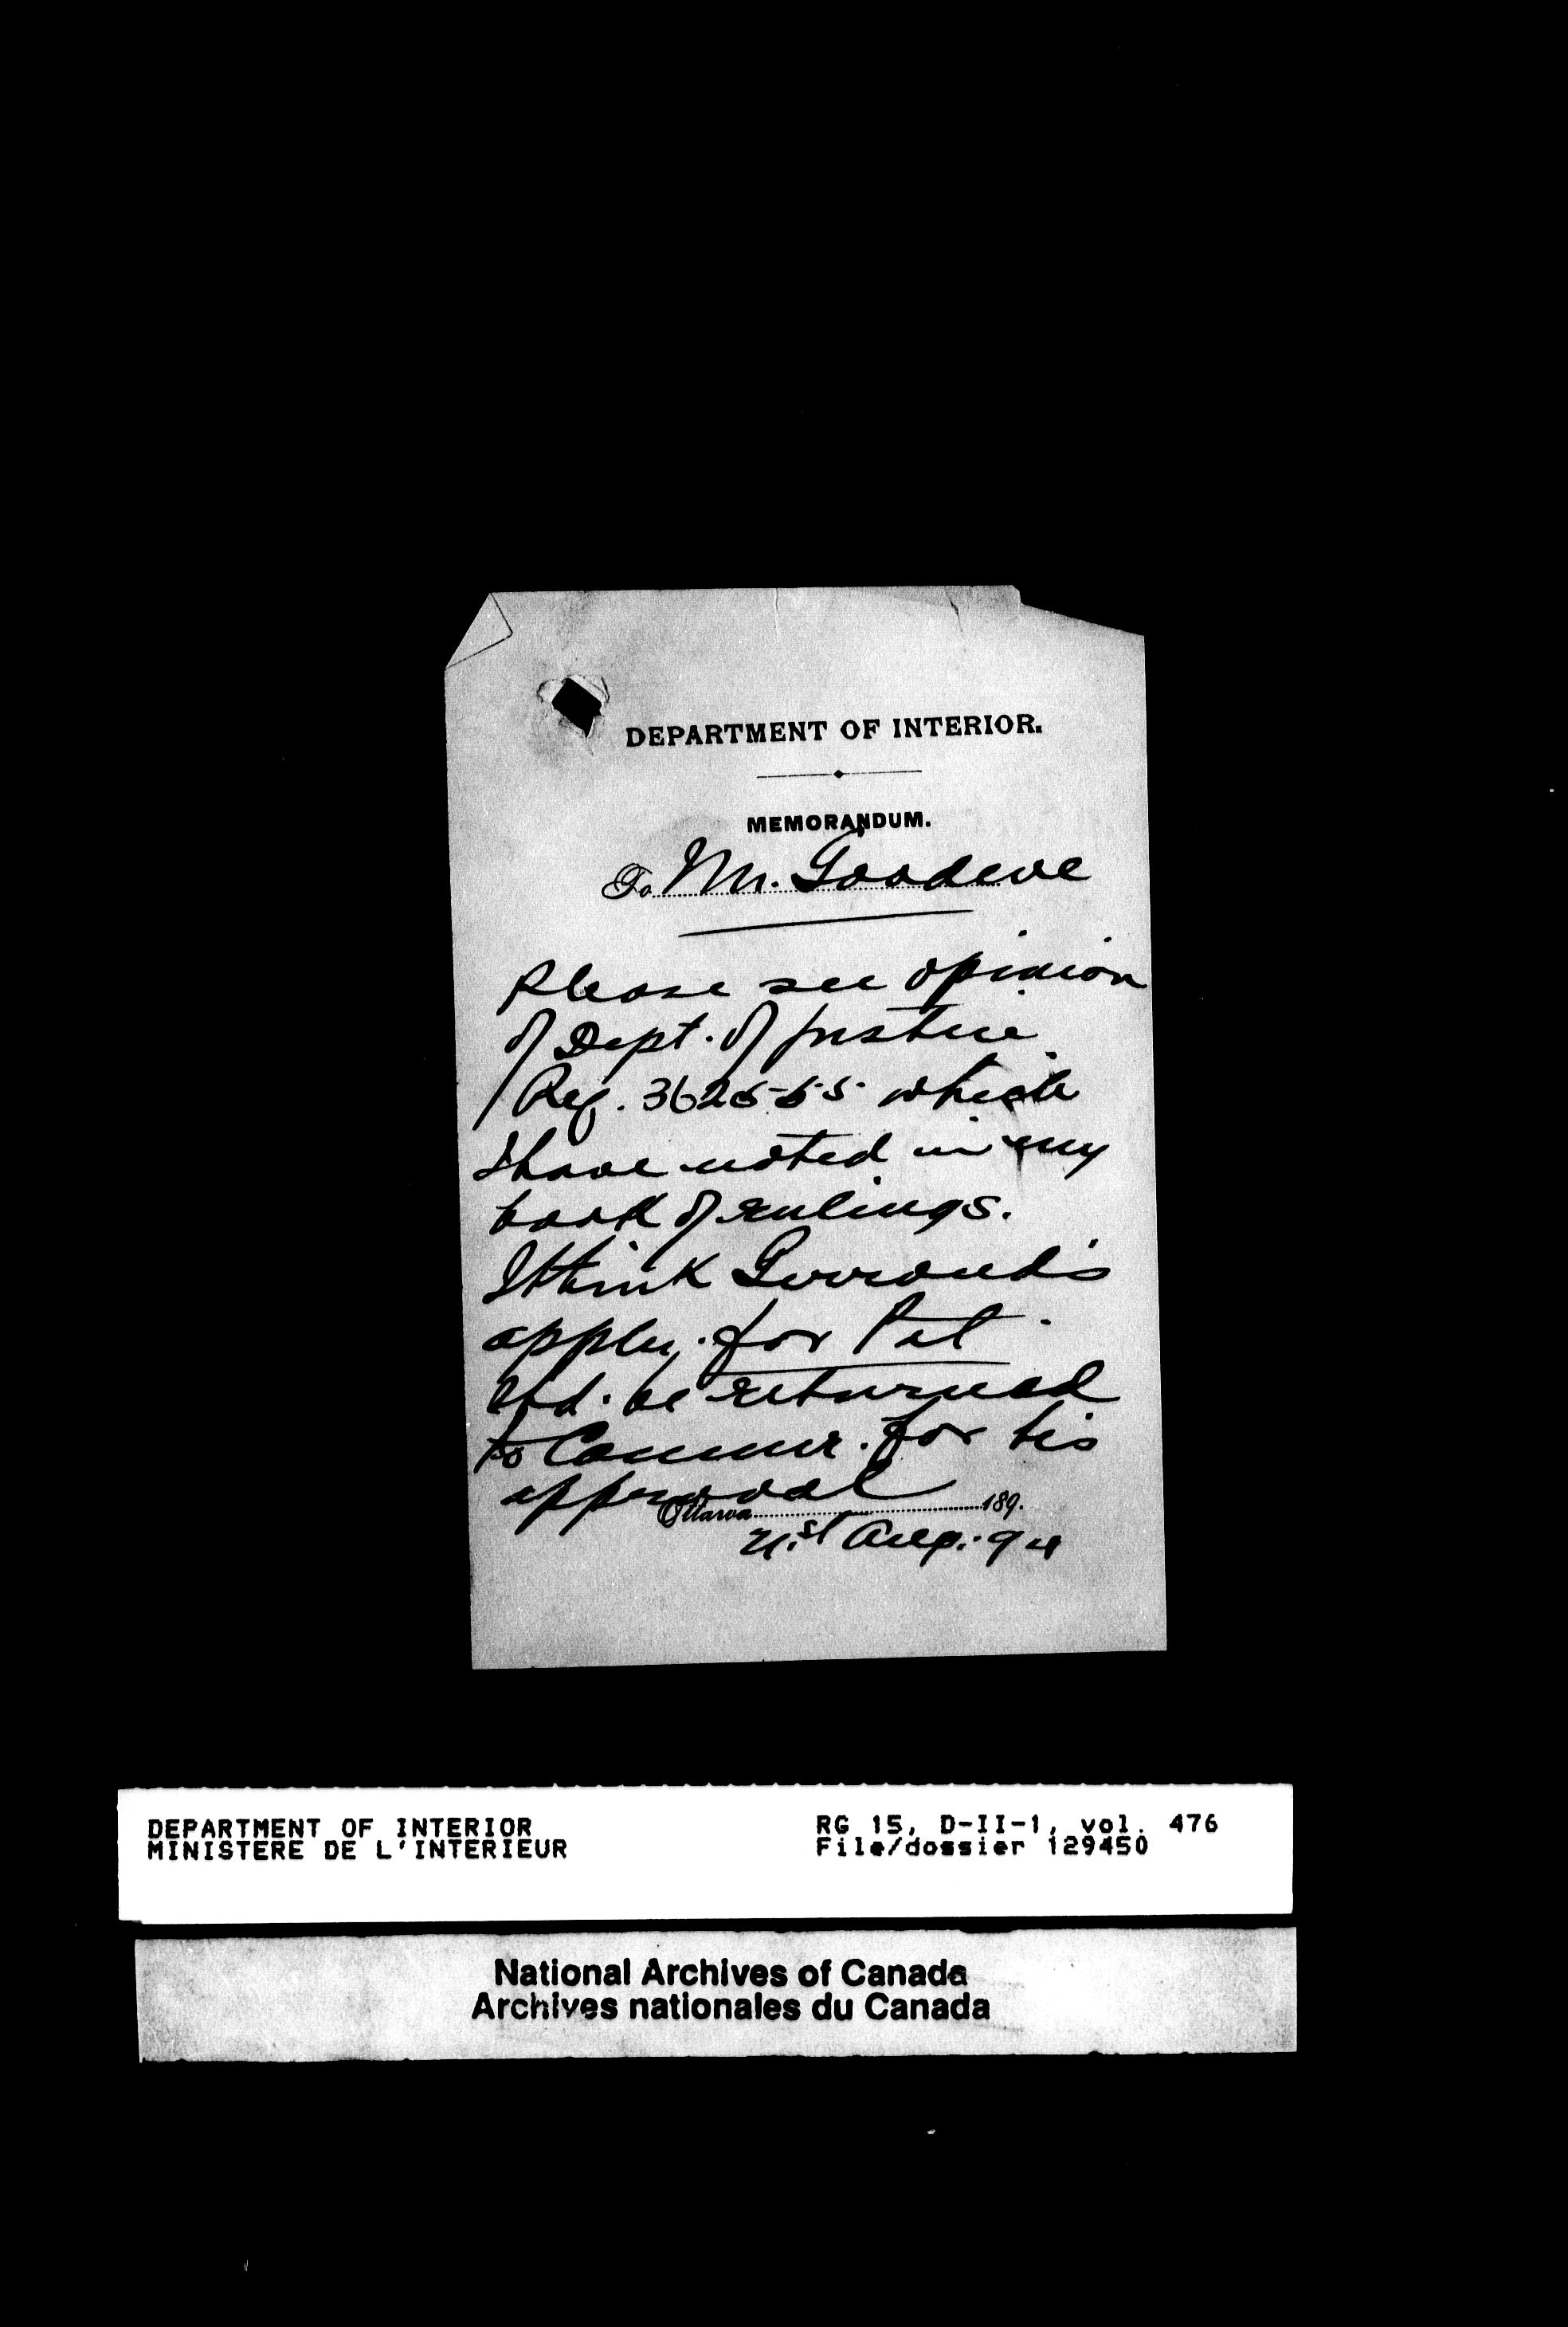 DEPARTMENT OF INTERIOR.
MEMORANDUM.
To Mr. Goodeve
Please see opinion
of Dept. of Justice
Ref. 362555 which
I have noted in my
book of rulings.
I think
appln. for Pat.
shd. be returned
to Commr. for his
approval
Ottawa 189.
21st Aug. 94
DEPARTMENT OF INTERIOR
MINISTERE DE L'INTERIEUR
RG 15, D-II-1, vol. 476
File/dossier 129450
National Archives of Canada
Archives nationales du Canada